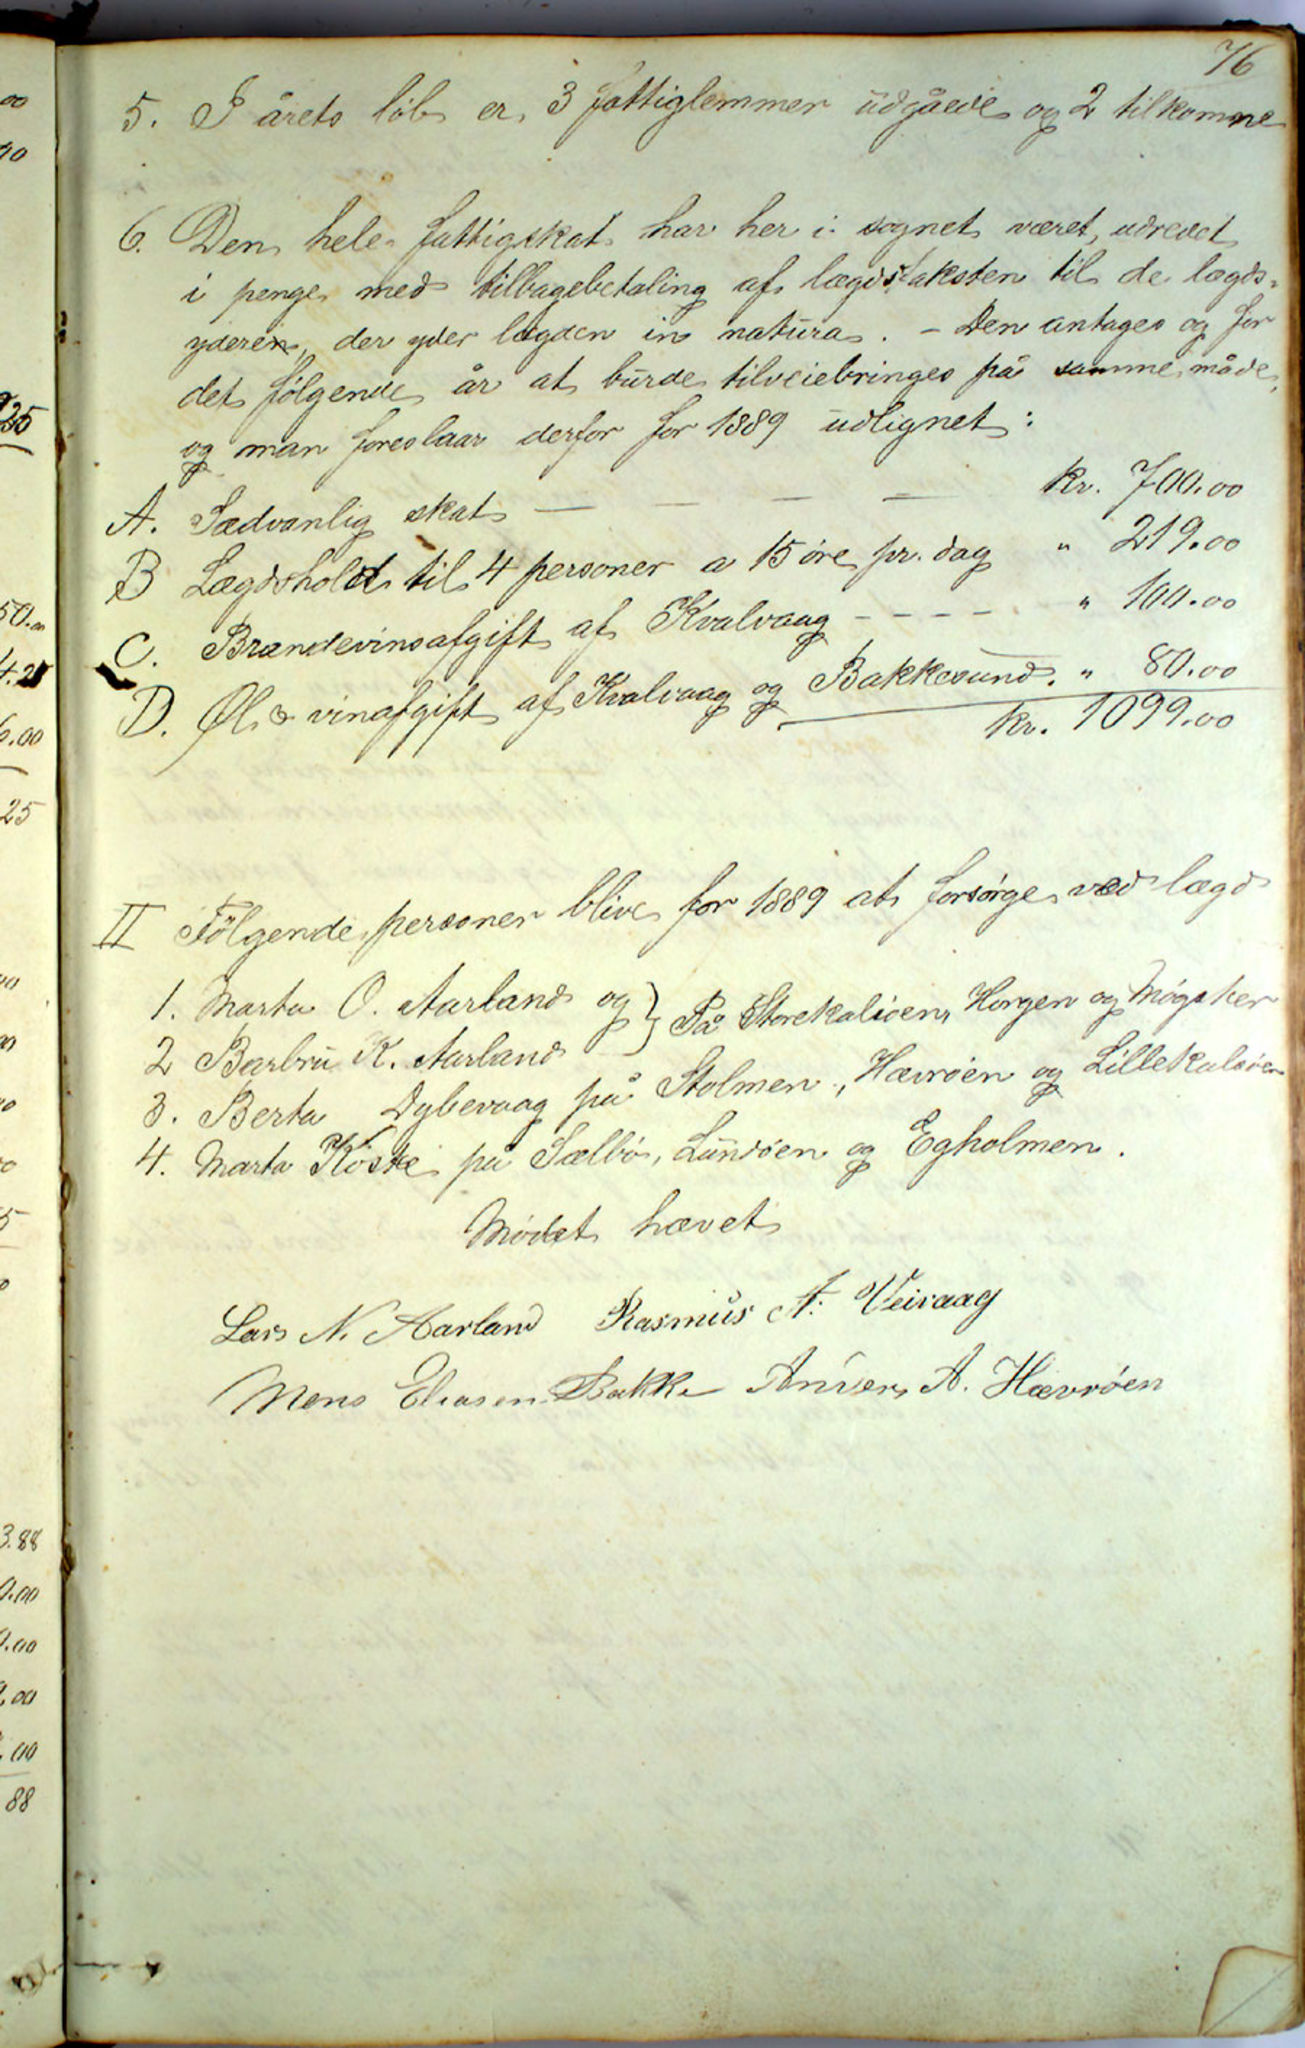 76
5. I årets løb er 3 fattiglemmer udgåede og 2 tilkomne
6. Den hele fattigskat har her i sognet været udredet
i penge med tilbagebetaling af lægdstaksten til de lægds-
yderen, der yder lægden in natura. - Den antages og for
det følgende år at burde tilveiebringes på samme måde,
og man foreslaar derfor for 1889 udlignet:
A. Sædvanlig skat — — — — kr. 700.00
B Lægdshold til 4 personer a 15 øre pr. dag " 219.00
C. Brændevinsafgift af Kvalvaag - - - - - " 100.00
D. Øl & vinafgift af Kvalvaag og Bakkesund. " 80.00
kr. 1099.00
II Følgende personer blive for 1889 at forsørge ved lægd
1. Marta O. Aarland og } På Storekalsøen, Horgen og Møgster
2 Barbru K. Aarland
3. Berta Dybevaag på Stolmen, Hævrøen og Lillekalsøen
4. Marta Røste på Sælbø, Lundøen og Egholmen.
Mødet hævet
Lars N. Aarland Rasmus A. Veivaag
Mons Eliasen Bakke Anders A. Hævrøen
25
50.00
4.2
6.00
25
3.88
0.00
0.00
88